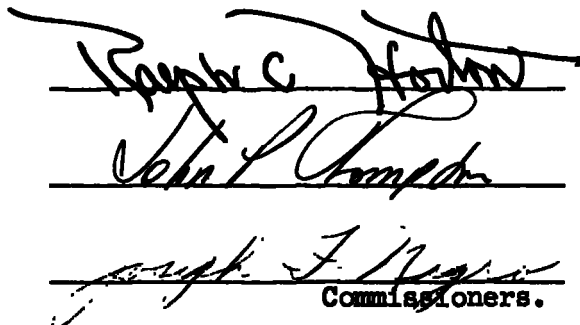 Ralph C Horton
John P Thompson
Joseph F. Negri
Commissioners.